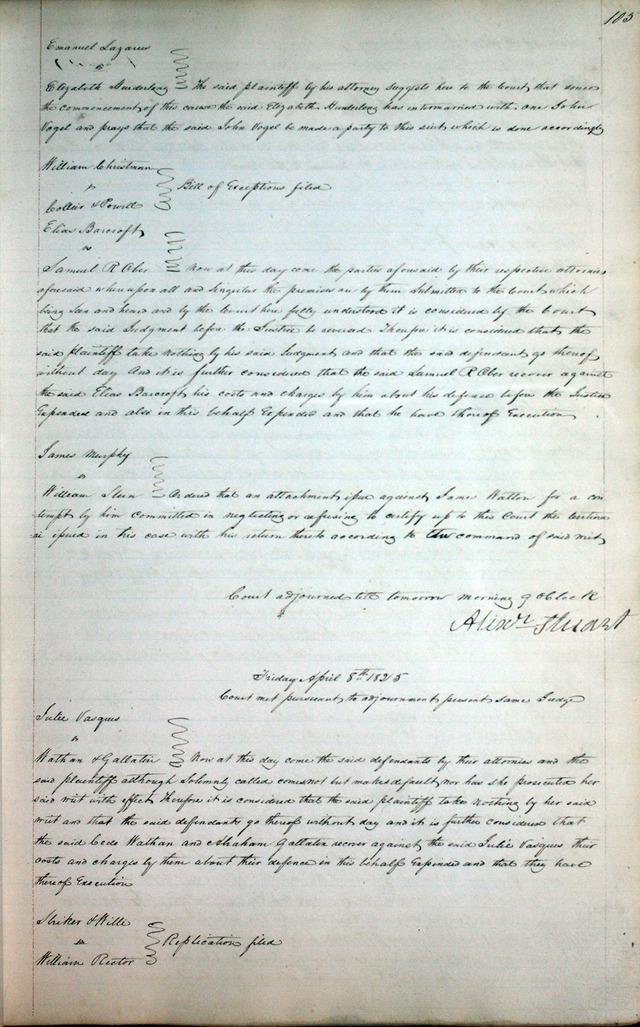 103
Emanuel Lazarus
vs
Elizabeth Hunderlong The said plaintiff by his attorney suggests here to the Court that since
the commencement of this cause the said Elizabeth Hunderlong has intermarried with one John
Vogel and prays that the said John Vogel be made a party to this suit which is done accordingly
William Christman
vs
Collier & Powell
Bill of Exceptions filed
Elias Barcroft
vs
Samuel R Ober Now at this day come the parties aforesaid by their respective attornies
aforesaid whereupon all and singular the premises are by them submitted to the Court which
being seen and heard and by the Court here fully understood it is considered by the Court
that the said Judgment before the Justice be reversed Therefore it is considered that the
said plaintiff take nothing by his said Judgment and that the said defendant go thereof
without day And it is further considered that the said Samuel R Ober recover against
the said Elias Barcroft his costs and charges by him about his defence before the Justice
Expended and also in this behalf Expended and that he have thereof Execution
James Murphy
vs
William Ordered that an attachment issue against James Walton for a con
tempt by him committed in neglecting or refusing to certify up to this Court the certiora
ri issued in his case with his return thereto according to the command of said writ
Court adjourned till tomorrow morning 9 oClock
Alexr Stuart
Friday April 8th 1825
Court met pursuant to adjournment present same Judge
Julie Vasques
vs
Wathan & Gallatin Now at this day come the said defendants by their attornies and the
said plaintiff although solemnly called comes not but makes default, nor has she prosecuted her
said writ with effect Therefore it is considered that the said plaintiff take nothing by her said
writ and that the said defendants go thereof without day and it is further considered that
the said Wathan and Abraham Gallatin recover against the said Julie Vasques their
costs and charges by them about their defence in this behalf Expended and that they have
thereof Execution
Striker & Wille
vs
William Rector
Replication filed